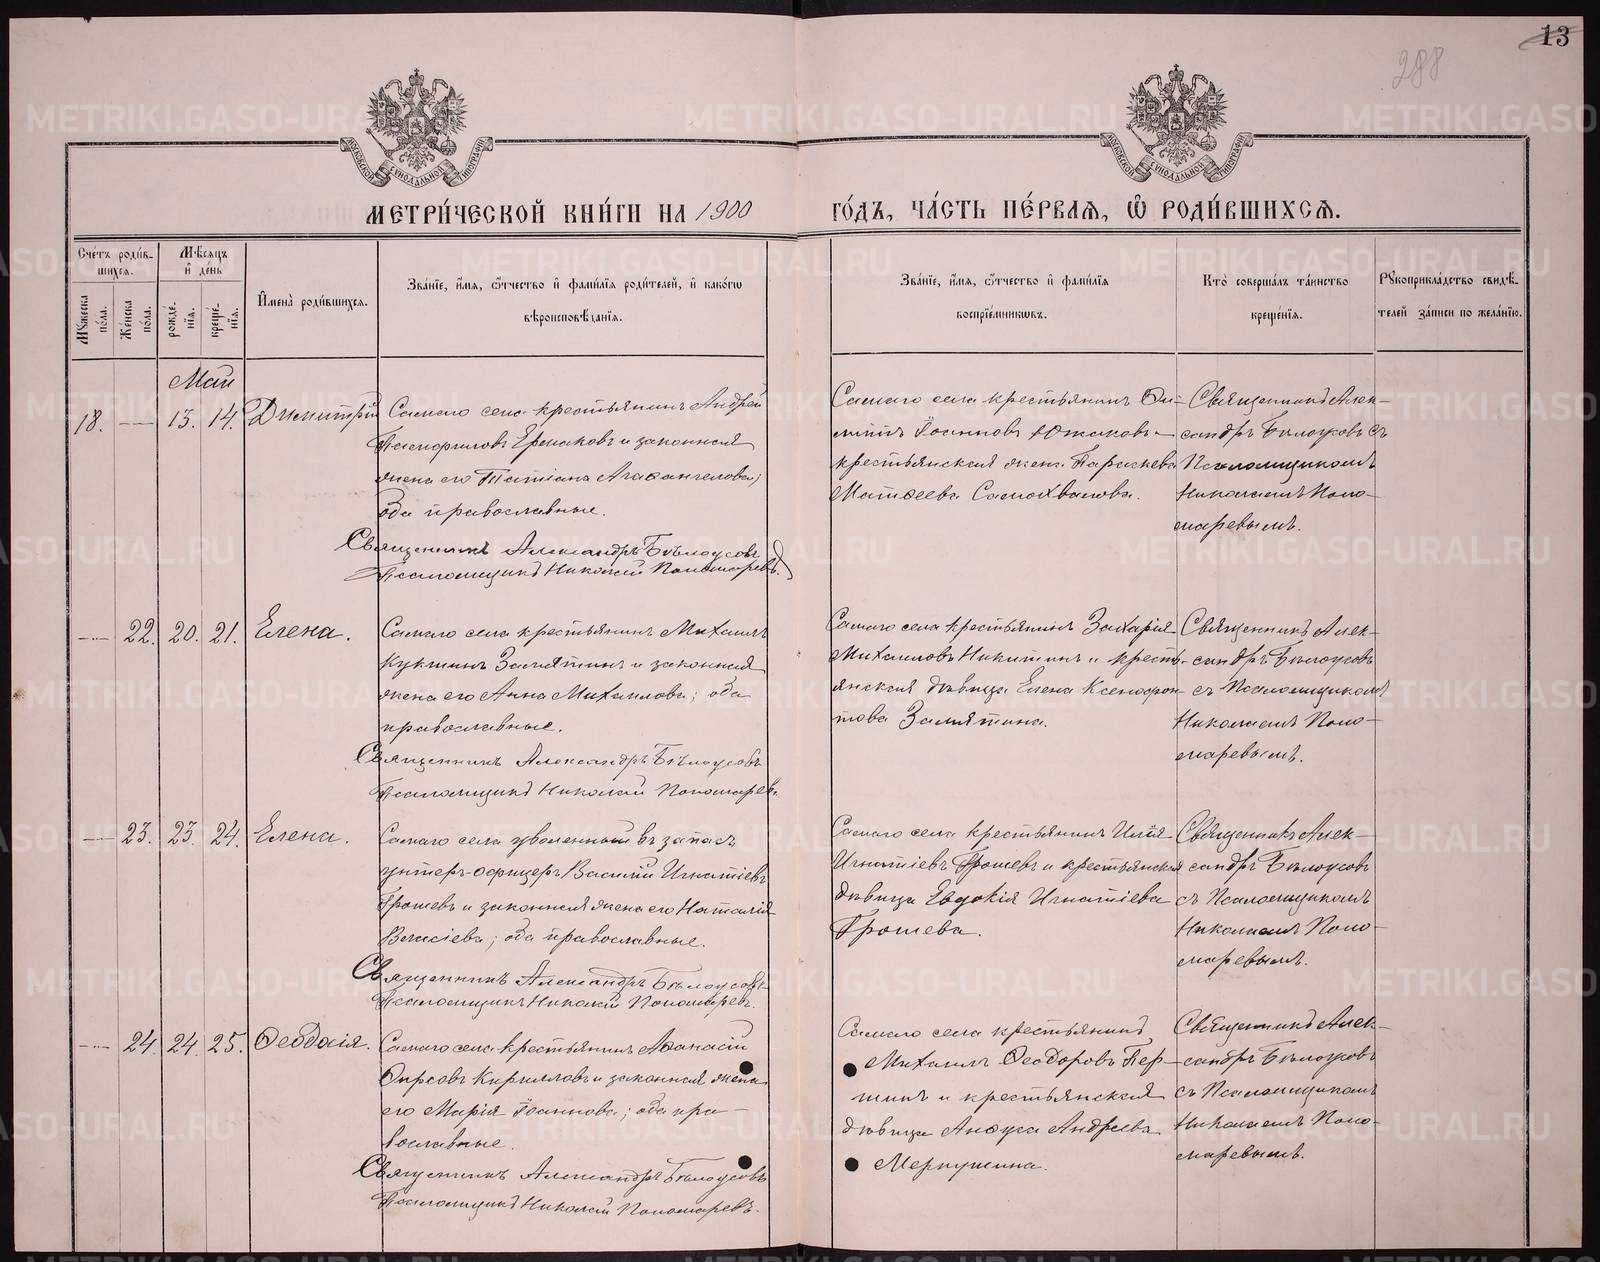 13
288
МОСКОВСКОЙ СѴНОДАЛЬНОЙ ТИПОГРАФІИ
МОСКОВСКОЙ СѴНОДАЛЬНОЙ ТИПОГРАФІИ
МЕТРИ́ЧЕСКОЙ КНИ́ГИ НА 1900
ГО́ДЪ, ЧА́СТЬ ПЕ́РВАѦ, Ѡ҆ РОДИ́ВШИХСѦ.
Сче́тъ роди́в-
шихсѧ.
Мѣ́сѧцъ
и҆ де́нь
Мꙋ́жеска
по́ла.
Же́нска
по́ла.
рожде́-
нїѧ.
креще́-
нїѧ.
И҆мена̀ роди́вшихсѧ.
Зва́нїе, и҆́мѧ, ѻ҆́тчество и҆ фами́лїѧ роди́телей, и҆ како́гѡ
вѣроисповѣ́данїѧ.
Зва́нїе, и҆́мѧ, ѻ҆́тчество и҆ фами́лїѧ
воспрїе́мникѡвъ.
Кто̀ соверша́лъ та́инство
креще́нїѧ.
Рꙋкоприкла́дство свидѣ́-
телей за́писи по жела́нїю.
Май
18. — 13. 14. Димитрій
Самаго села крестьянинъ Андрей
Памфиловъ Ермаковъ и законная
жена его Татіана Агаѳангелова;
оба православные.
Священникъ Александръ Бѣлоусовъ
Псаломщикъ Николай Пономаревъ.
Самаго села крестьянинъ Фи-
липпъ Іоанновъ Южаковъ и
крестьянская жена Параскева
Матѳеева Самохвалова.
Священникъ Алек-
сандръ Бѣлоусовъ съ
Псаломщикомъ
Николаемъ Поно-
маревымъ.
— 22. 20. 21. Елена.
Самаго села крестьянинъ Михаилъ
Замятинъ и законная
жена его Анна Михаилова; оба
православные.
Священникъ Александръ Бѣлоусовъ
Псаломщикъ Николай Пономаревъ.
Самаго села крестьянинъ Захарія
Михаиловъ Никитинъ и кресть-
янская дѣвица Елена Ксенофон-
това Замятина.
Священникъ Алек-
сандръ Бѣлоусовъ
съ Псаломщикомъ
Николаемъ Поно-
маревымъ.
— 23. 23. 24. Елена.
Самаго села уволенный въ запасъ
унтеръ-офицеръ Василій Игнатіевъ
Грошевъ и законная жена его Наталія
Власіева; оба православные.
Священникъ Александръ Бѣлоусовъ
Псаломщикъ Николай Пономаревъ.
Самаго села крестьянинъ Илія
Игнатіевъ Грошевъ и крестьянская
дѣвица Евдокія Игнатіева
Грошева.
Священникъ Алек-
сандръ Бѣлоусовъ
съ Псаломщикомъ
Николаемъ Поно-
маревымъ.
— 24. 24. 25. Ѳеодосія.
Самаго села крестьянинъ Аѳанасій
Ѳирсовъ Кирилловъ и законная жена
его Марія Іоаннова; оба пра-
вославные.
Священникъ Александръ Бѣлоусовъ
Псаломщикъ Николай Пономаревъ.
Самаго села крестьянинъ
Михаилъ Ѳеодоровъ Пер-
шинъ и крестьянская
дѣвица Анфуса Андреева
Меркушина.
Священникъ Алек-
сандръ Бѣлоусовъ
съ Псаломщикомъ
Николаемъ Поно-
маревымъ.